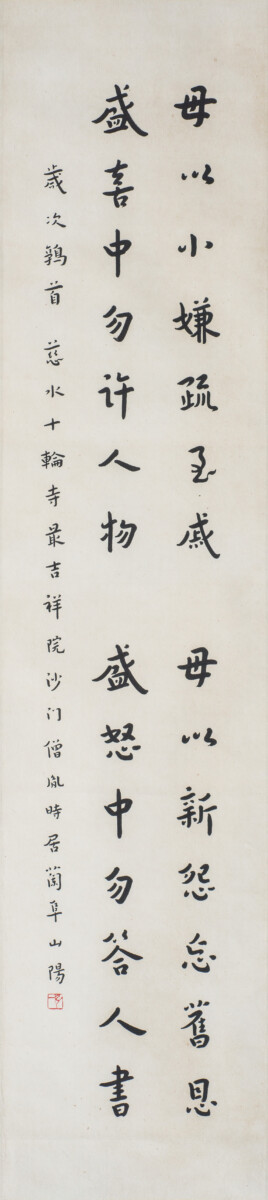 毋以小嫌疏至戚 毋以新怨忘舊恩
盛喜中勿许人物 盛怒中勿答人書
歲次鶉首 慈水十輪寺最吉祥院沙门僧胤時居蘭阜山陽